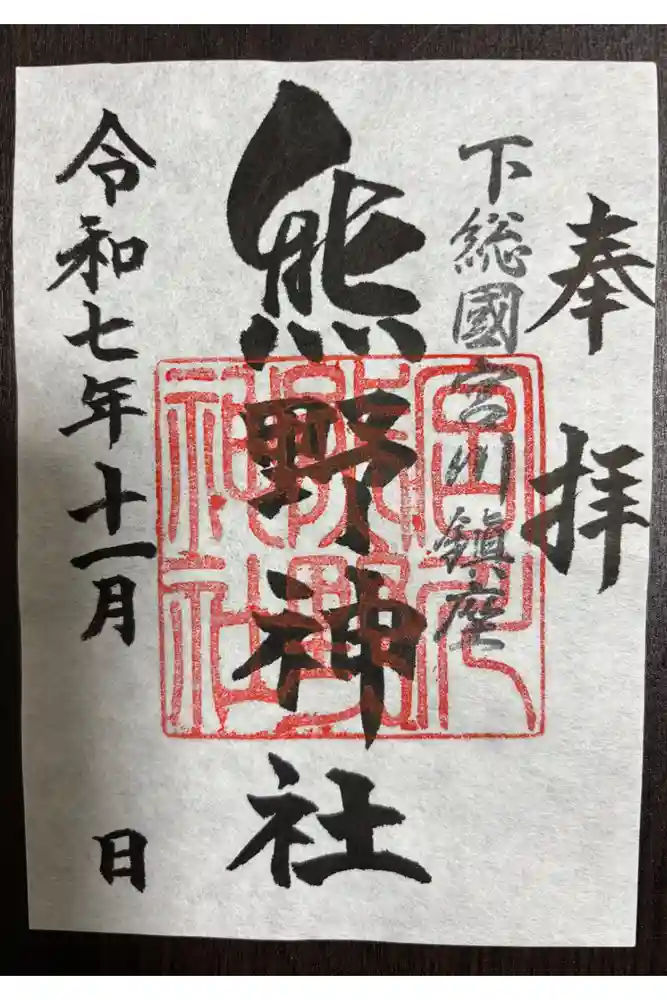 奉拝
下総國宮川鎮座
熊野神社
宮川熊野神社
令和七年十一月 日